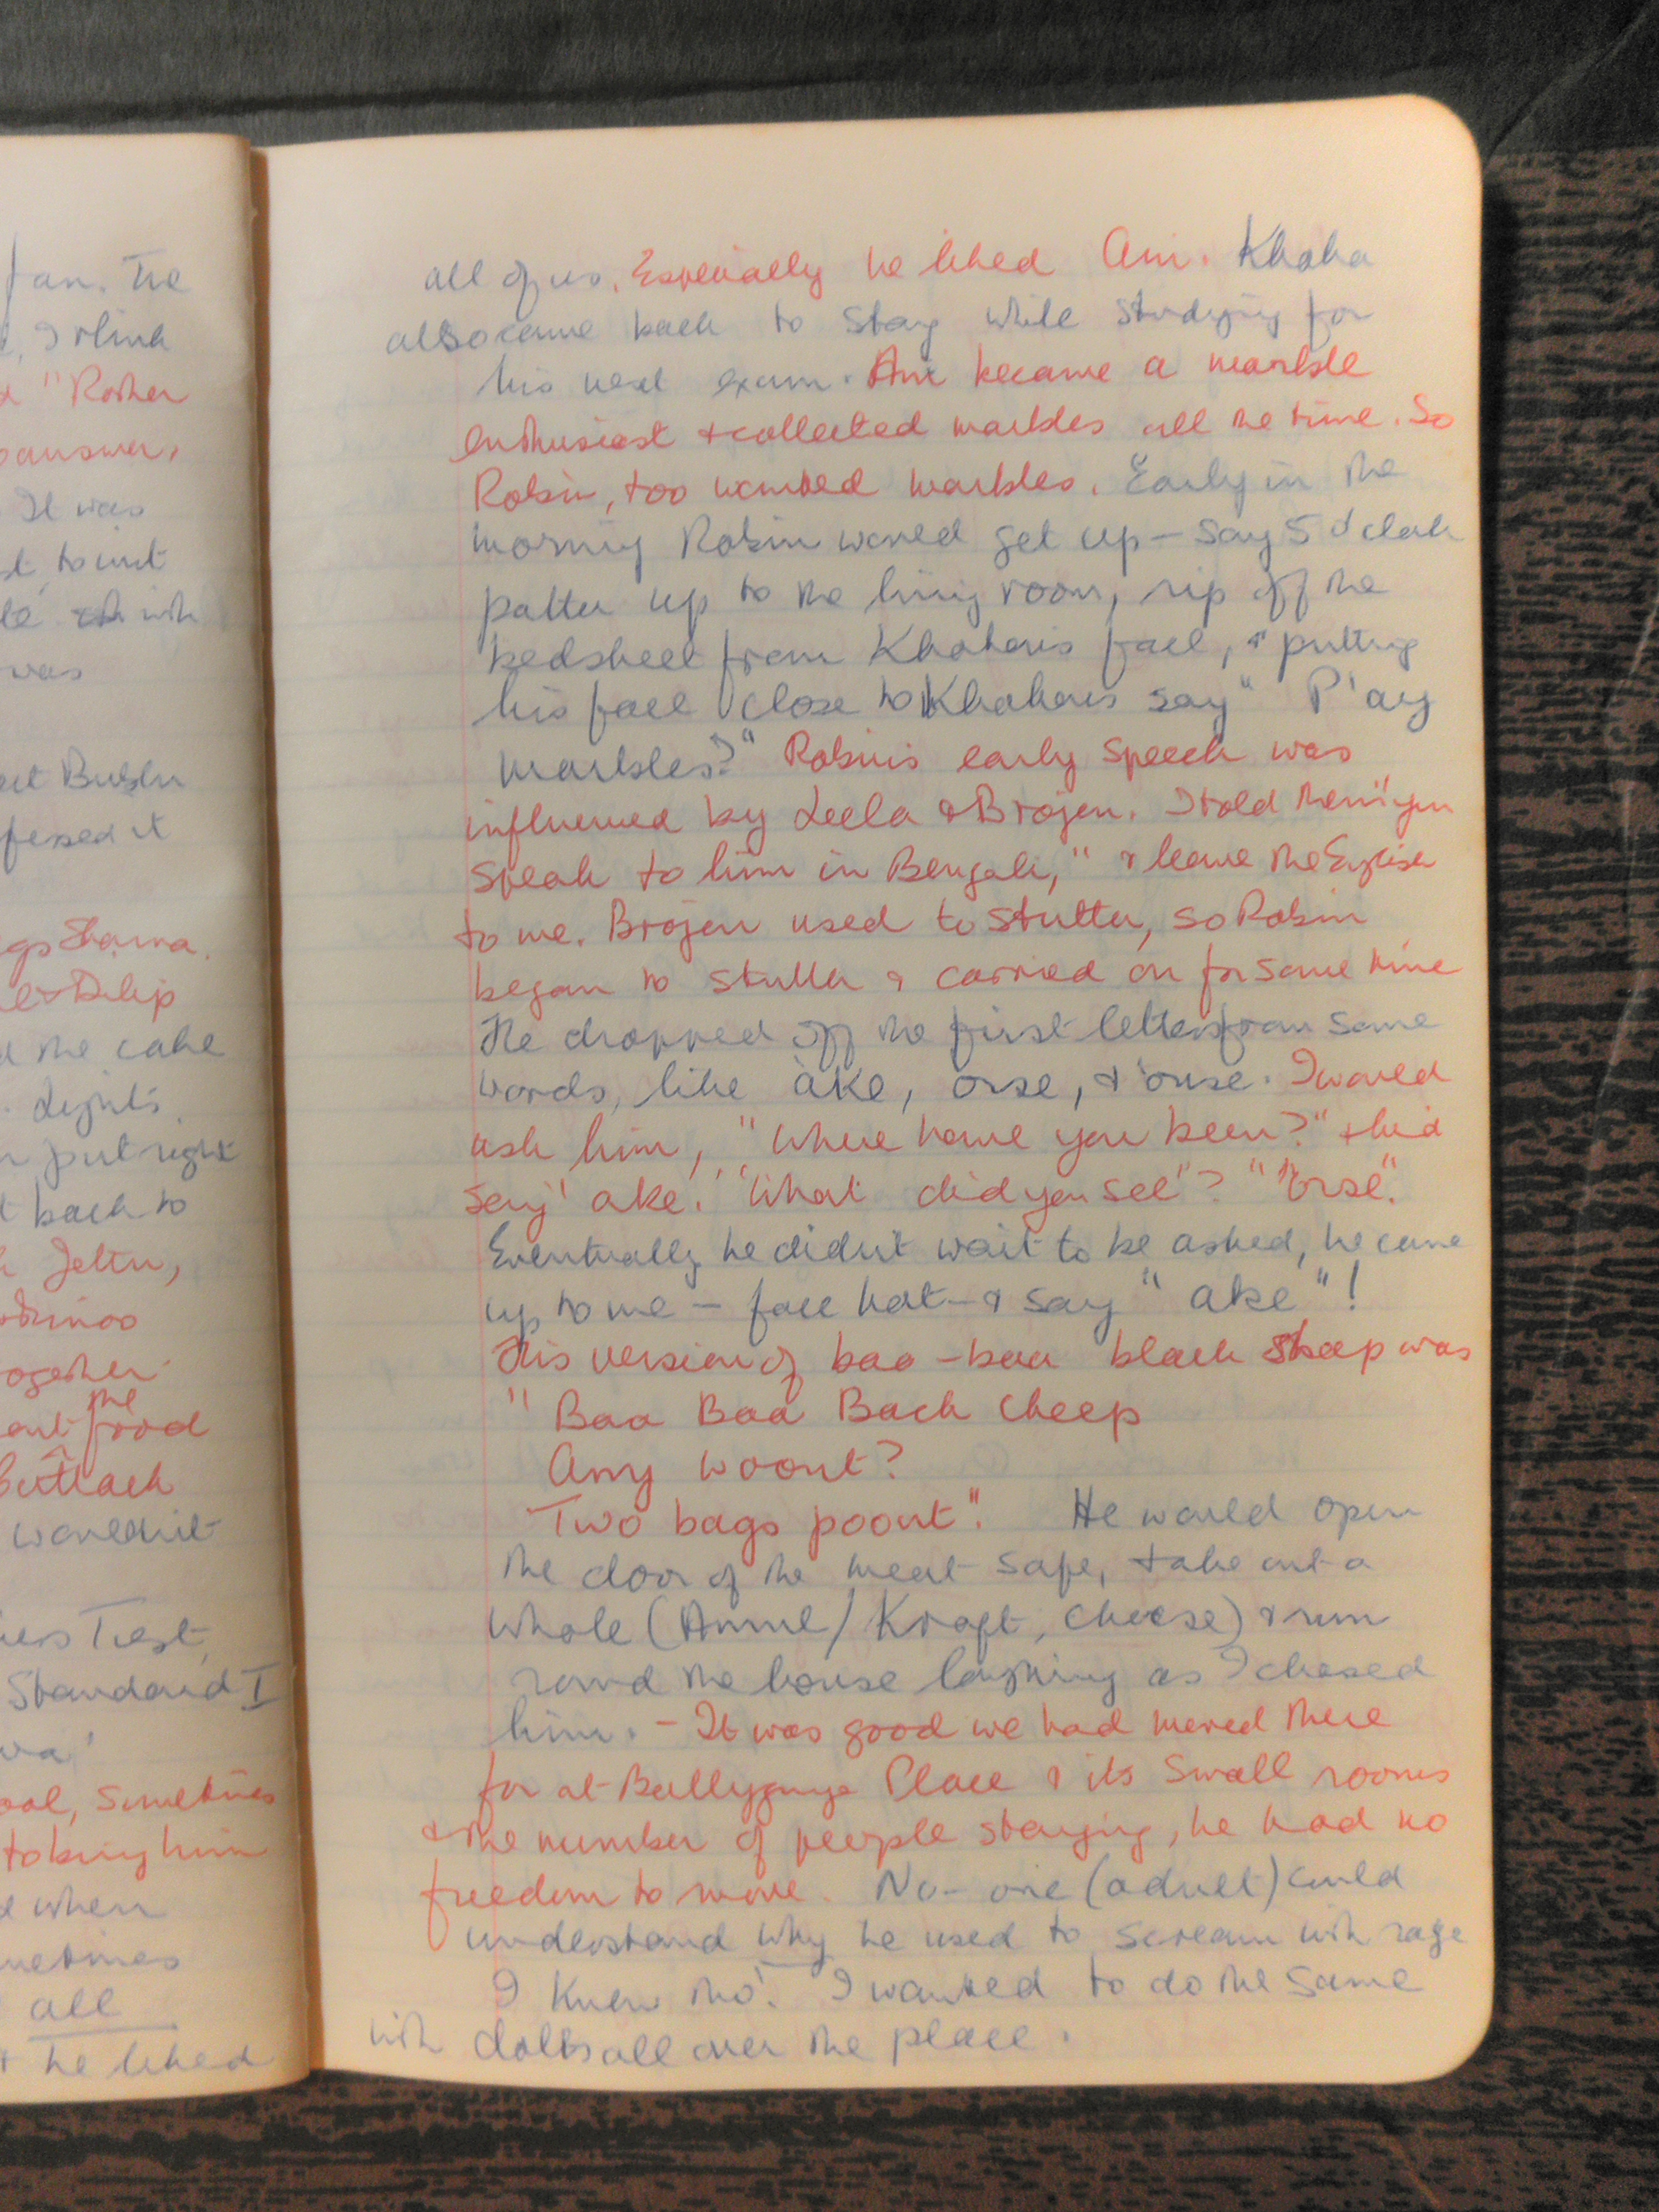 fan. The
, I think
"Rather
answer,
It was
was
Bublu
fessed it
Sharma.
& Dilip
the cake
Lights
put right
back to
Jettu,
together
the
food
Cuttack
wouldn't
Test,
Standard I
, sometimes
to bring him
when
metimes
all
he liked
all of us. Especially he liked Ani. Khoka
also came back to stay while studying for
his next exam. Ani became a marble
enthusiast & collected marbles all the time. So
Robin, too wanted marbles. Early in the
morning Robin would get up – say 5 o'clock
patter up to the living room, rip off the
bedsheet from Khoka's face, & putting
his face close to Khoka's say " P'ay
marbles?" Robin's early speech was
influenced by Leela & Brojen. I told them "you
speak to him in Bengali," & leave the English
to me. Brojen used to stutter, so Robin
began to stutter & carried on for some time
He dropped off the first letters from some
words, like 'ake, orse, & 'ouse. I would
ask him, "Where have you been?" & he'd
say' ake.' "What did you see"? "'orse".
Eventually he didn't wait to be asked, he came
up to me – face hot – & say " ake "!
His version of baa-baa black sheep was
" Baa Baa Back Cheep
Any woont?
Two bags poont". He would open
the door of the meat safe, take out a
whole (Amul/ Kraft, cheese) & run
round the house laughing as I chased
him. – It was good we had moved there
for at Ballygunge Place & its small rooms
& the number of people staying, he had no
freedom to move. No-one (adult) could
understand why he used to scream with rage
I knew tho'. I wanted to do the same
with all over the place.